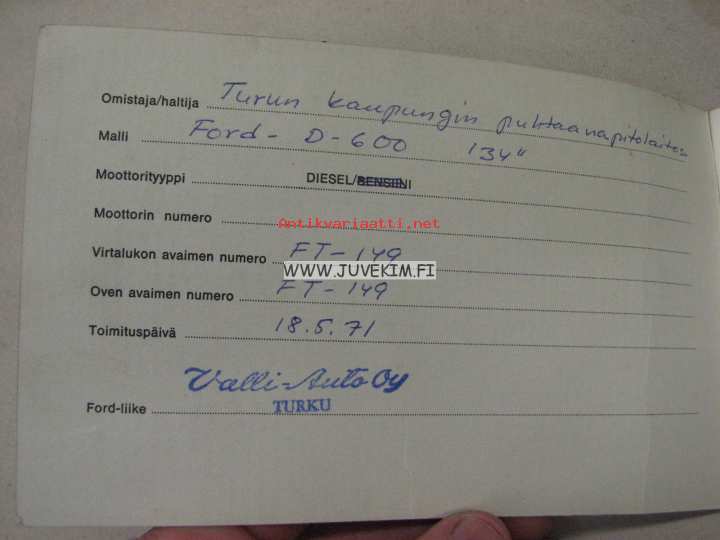 Omistaja/haltija Turun kaupungin puhtaanapitolaitos
Malli Ford - D-600 134"
Moottorityyppi DIESEL/BENSIINI
Moottorin numero
Antikvariaatti.net
Virtalukon avaimen numero FT-149
WWW.JUVEKIM.FI
Oven avaimen numero FT-149
Toimituspäivä 18.5.71
Valli-Auto Oy
Ford-liike TURKU